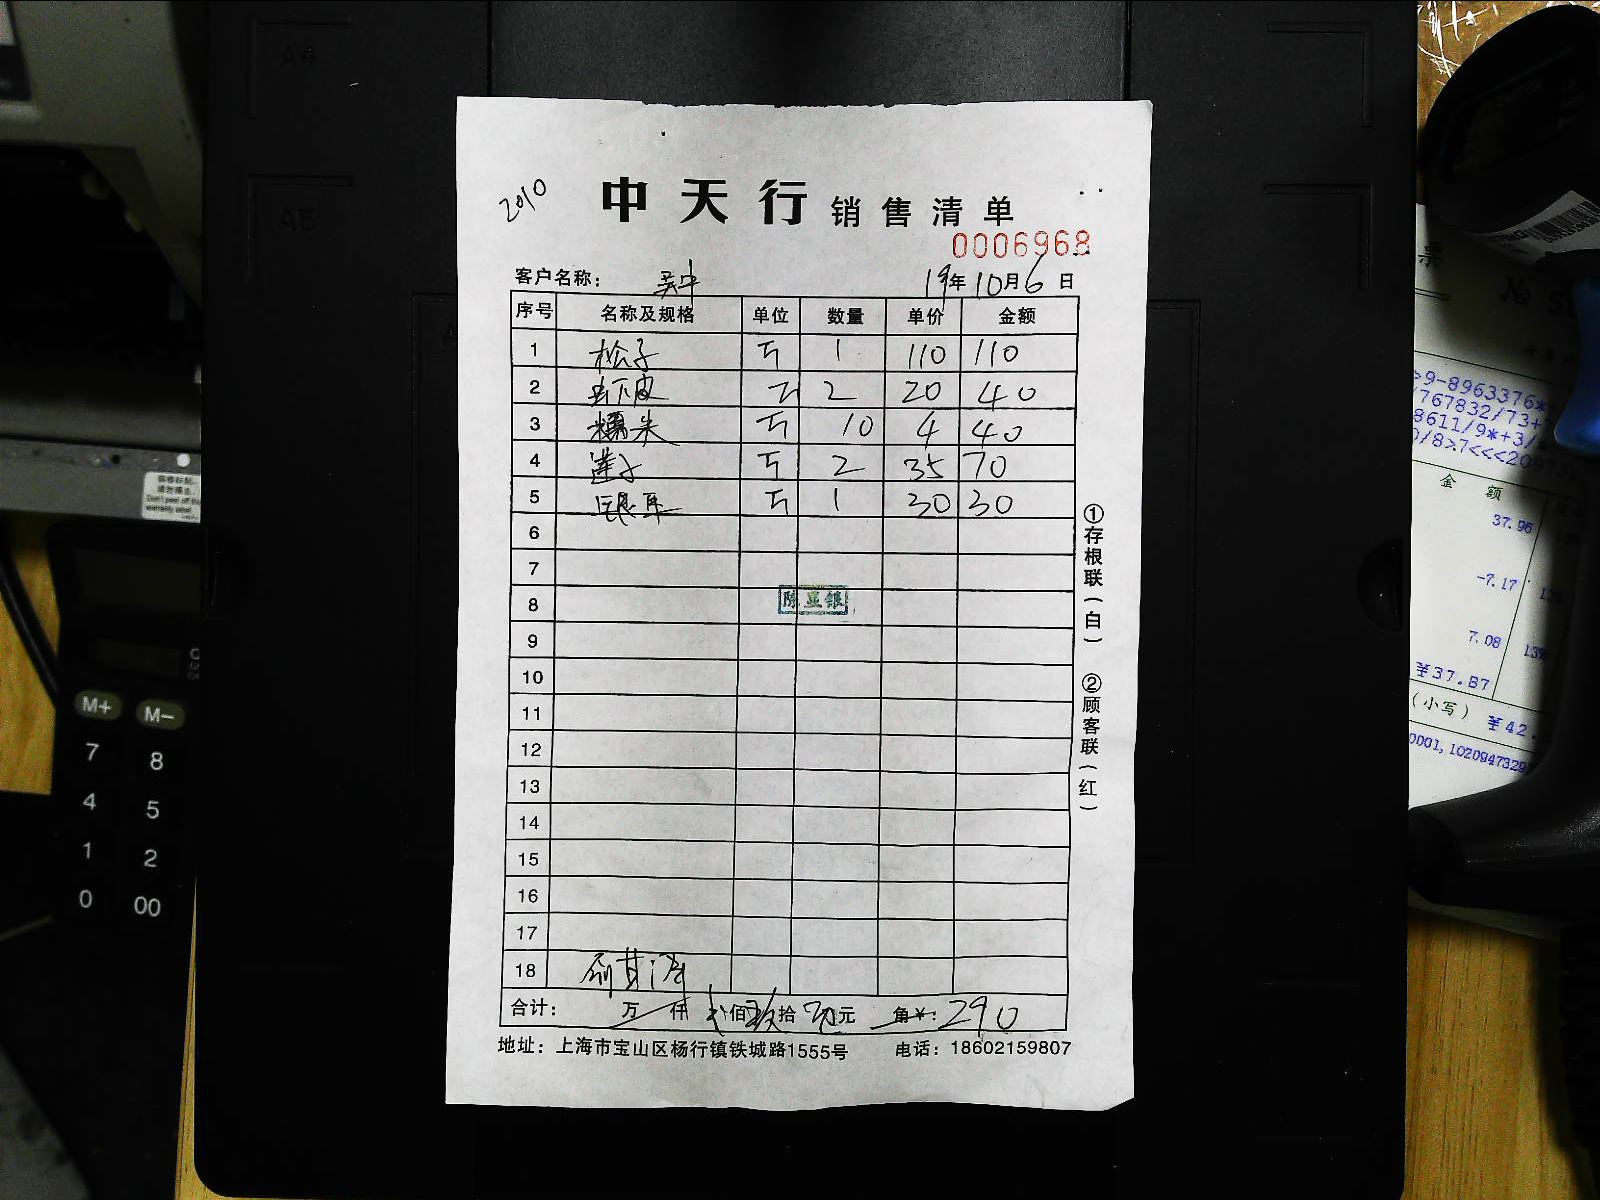 2010
中天行 销售清单
0006968
客户名称： 吴中 19年10月6日
序号 名称及规格 单位 数量 单价 金额
1 松子 斤 1 110 110
2 虾皮 斤 2 20 40
3 糯米 斤 10 4 40
4 莲子 斤 2 35 70
5 银耳 斤 1 30 30
6
7
8 陈孟银
9
10
11
12
13
14
15
16
17
18
合计： 万 仟 贰佰玖拾 元 角 ¥：290
地址：上海市宝山区杨行镇铁城路1555号 电话：18602159807
①存根联（白） ②顾客联（红）
A4
A5
M+ M−
7 8
4 5
1 2
0 00
票
№ 5
>9-8963376*
/767832/73+
8611/9*+3/
0/8>7<<<209
金额
37.96
-7.17
7.08 13%
¥37.87
（小写） ¥42.
0001,1020947329